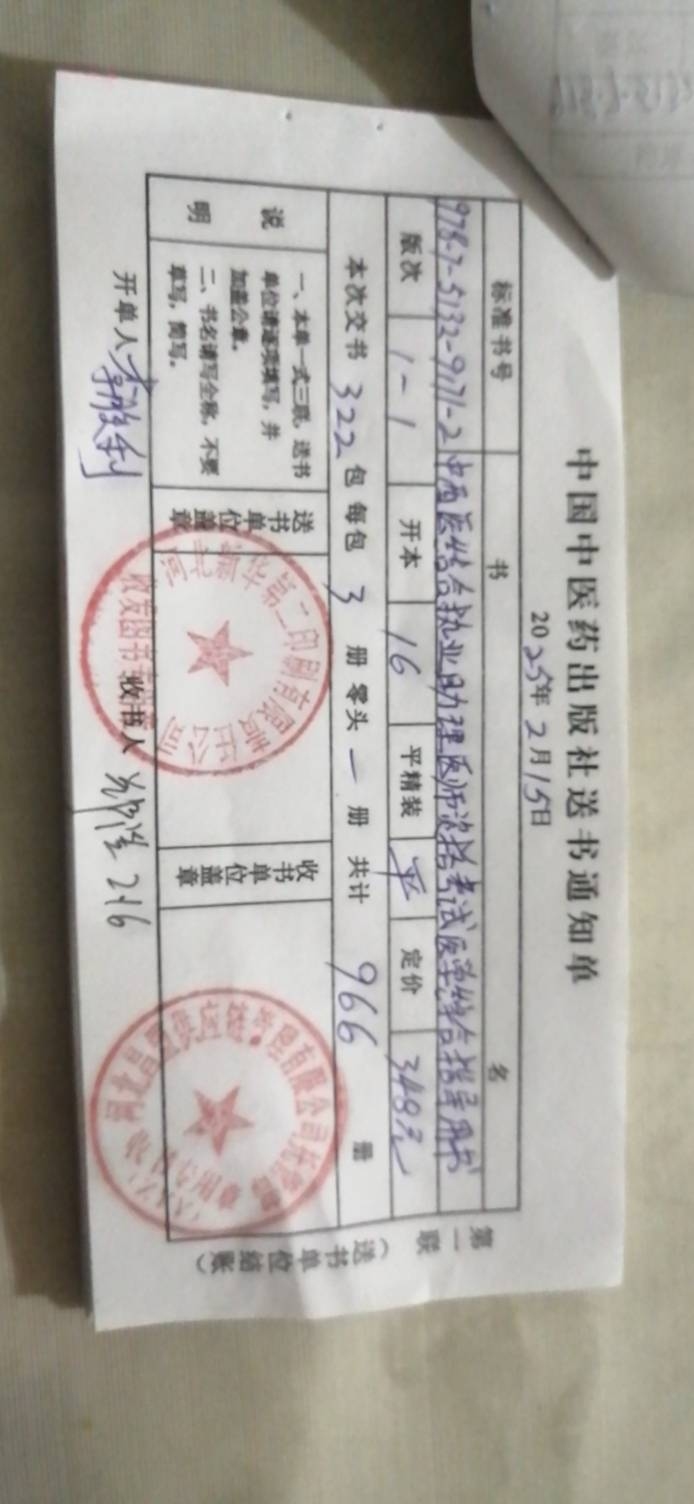 中国中医药出版社送书通知单
2025年2月15日
标准书号 书 名
978-7-5132-9171-2 中西医结合执业助理医师资格考试医学综合指导用书
版次 1-1 开本 16 平精装 平 定价 348元
本次交书 322 包 每包 3 册 零头 一 册 共计 966 册
说明
一、本单一式三联，送书
单位请逐项填写，并
加盖公章。
二、书名请写全称，不要
草写，简写。
送书单位盖章
河北新华第二印刷有限责任公司
收发图书专用章
收书单位盖章
第一联（送书单位结账）
开单人 李胜利
收书人 2.16